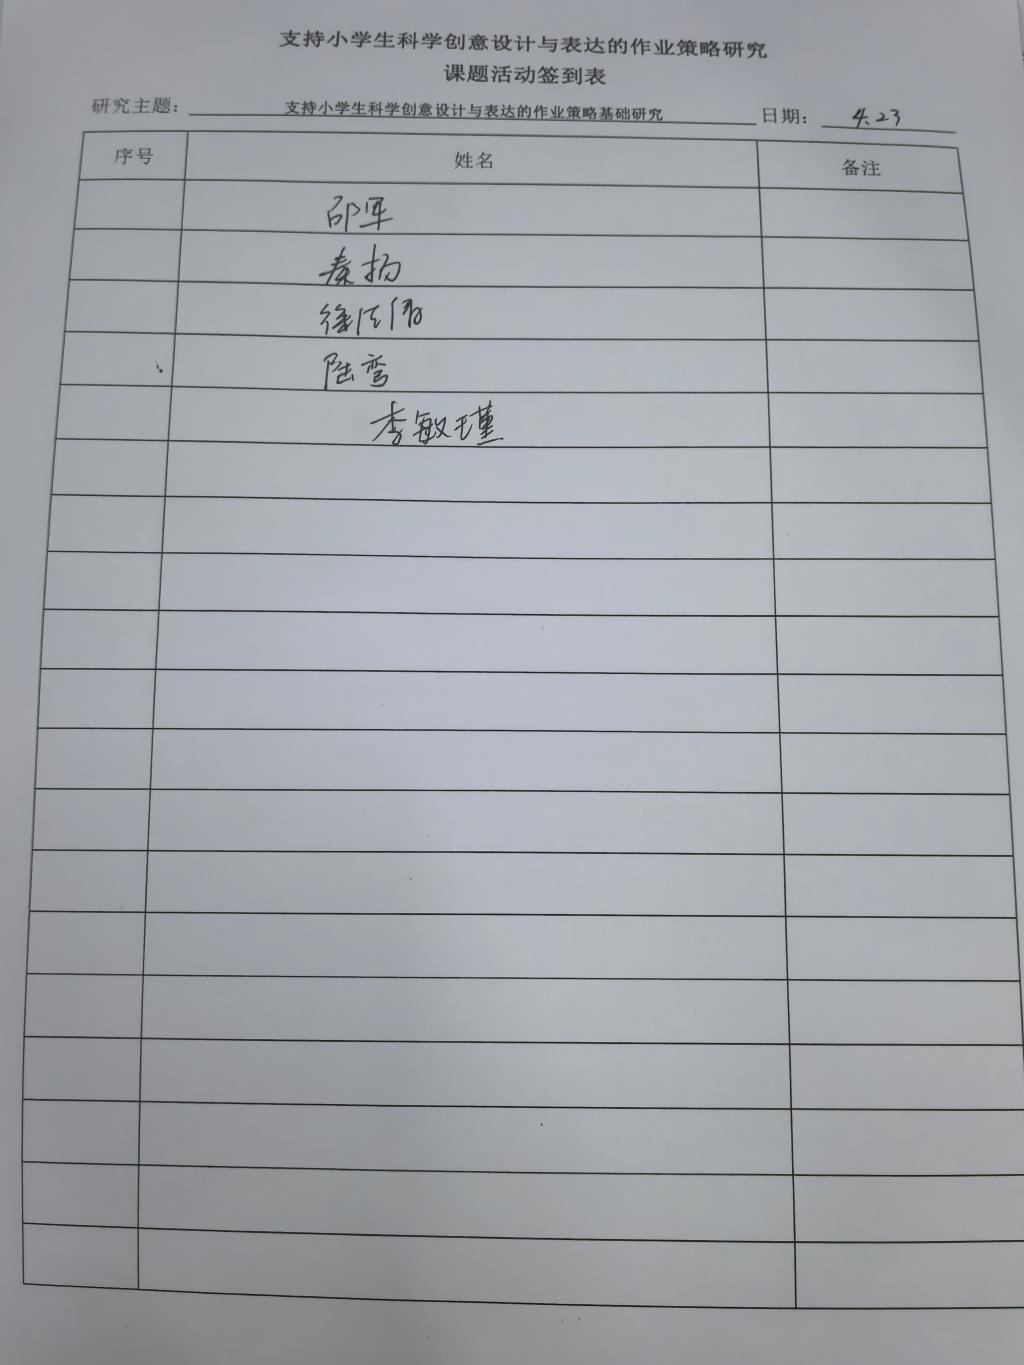 支持小学生科学创意设计与表达的作业策略研究
课题活动签到表
研究主题： 支持小学生科学创意设计与表达的作业策略基础研究 日期： 4.23
序号 姓名 备注
邵军
秦扬
陆弯
李敏瑾